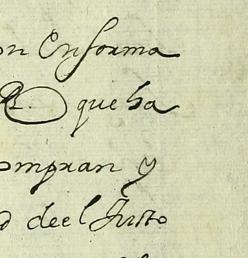 on Enforma
que ha
ompran y
deel Justo